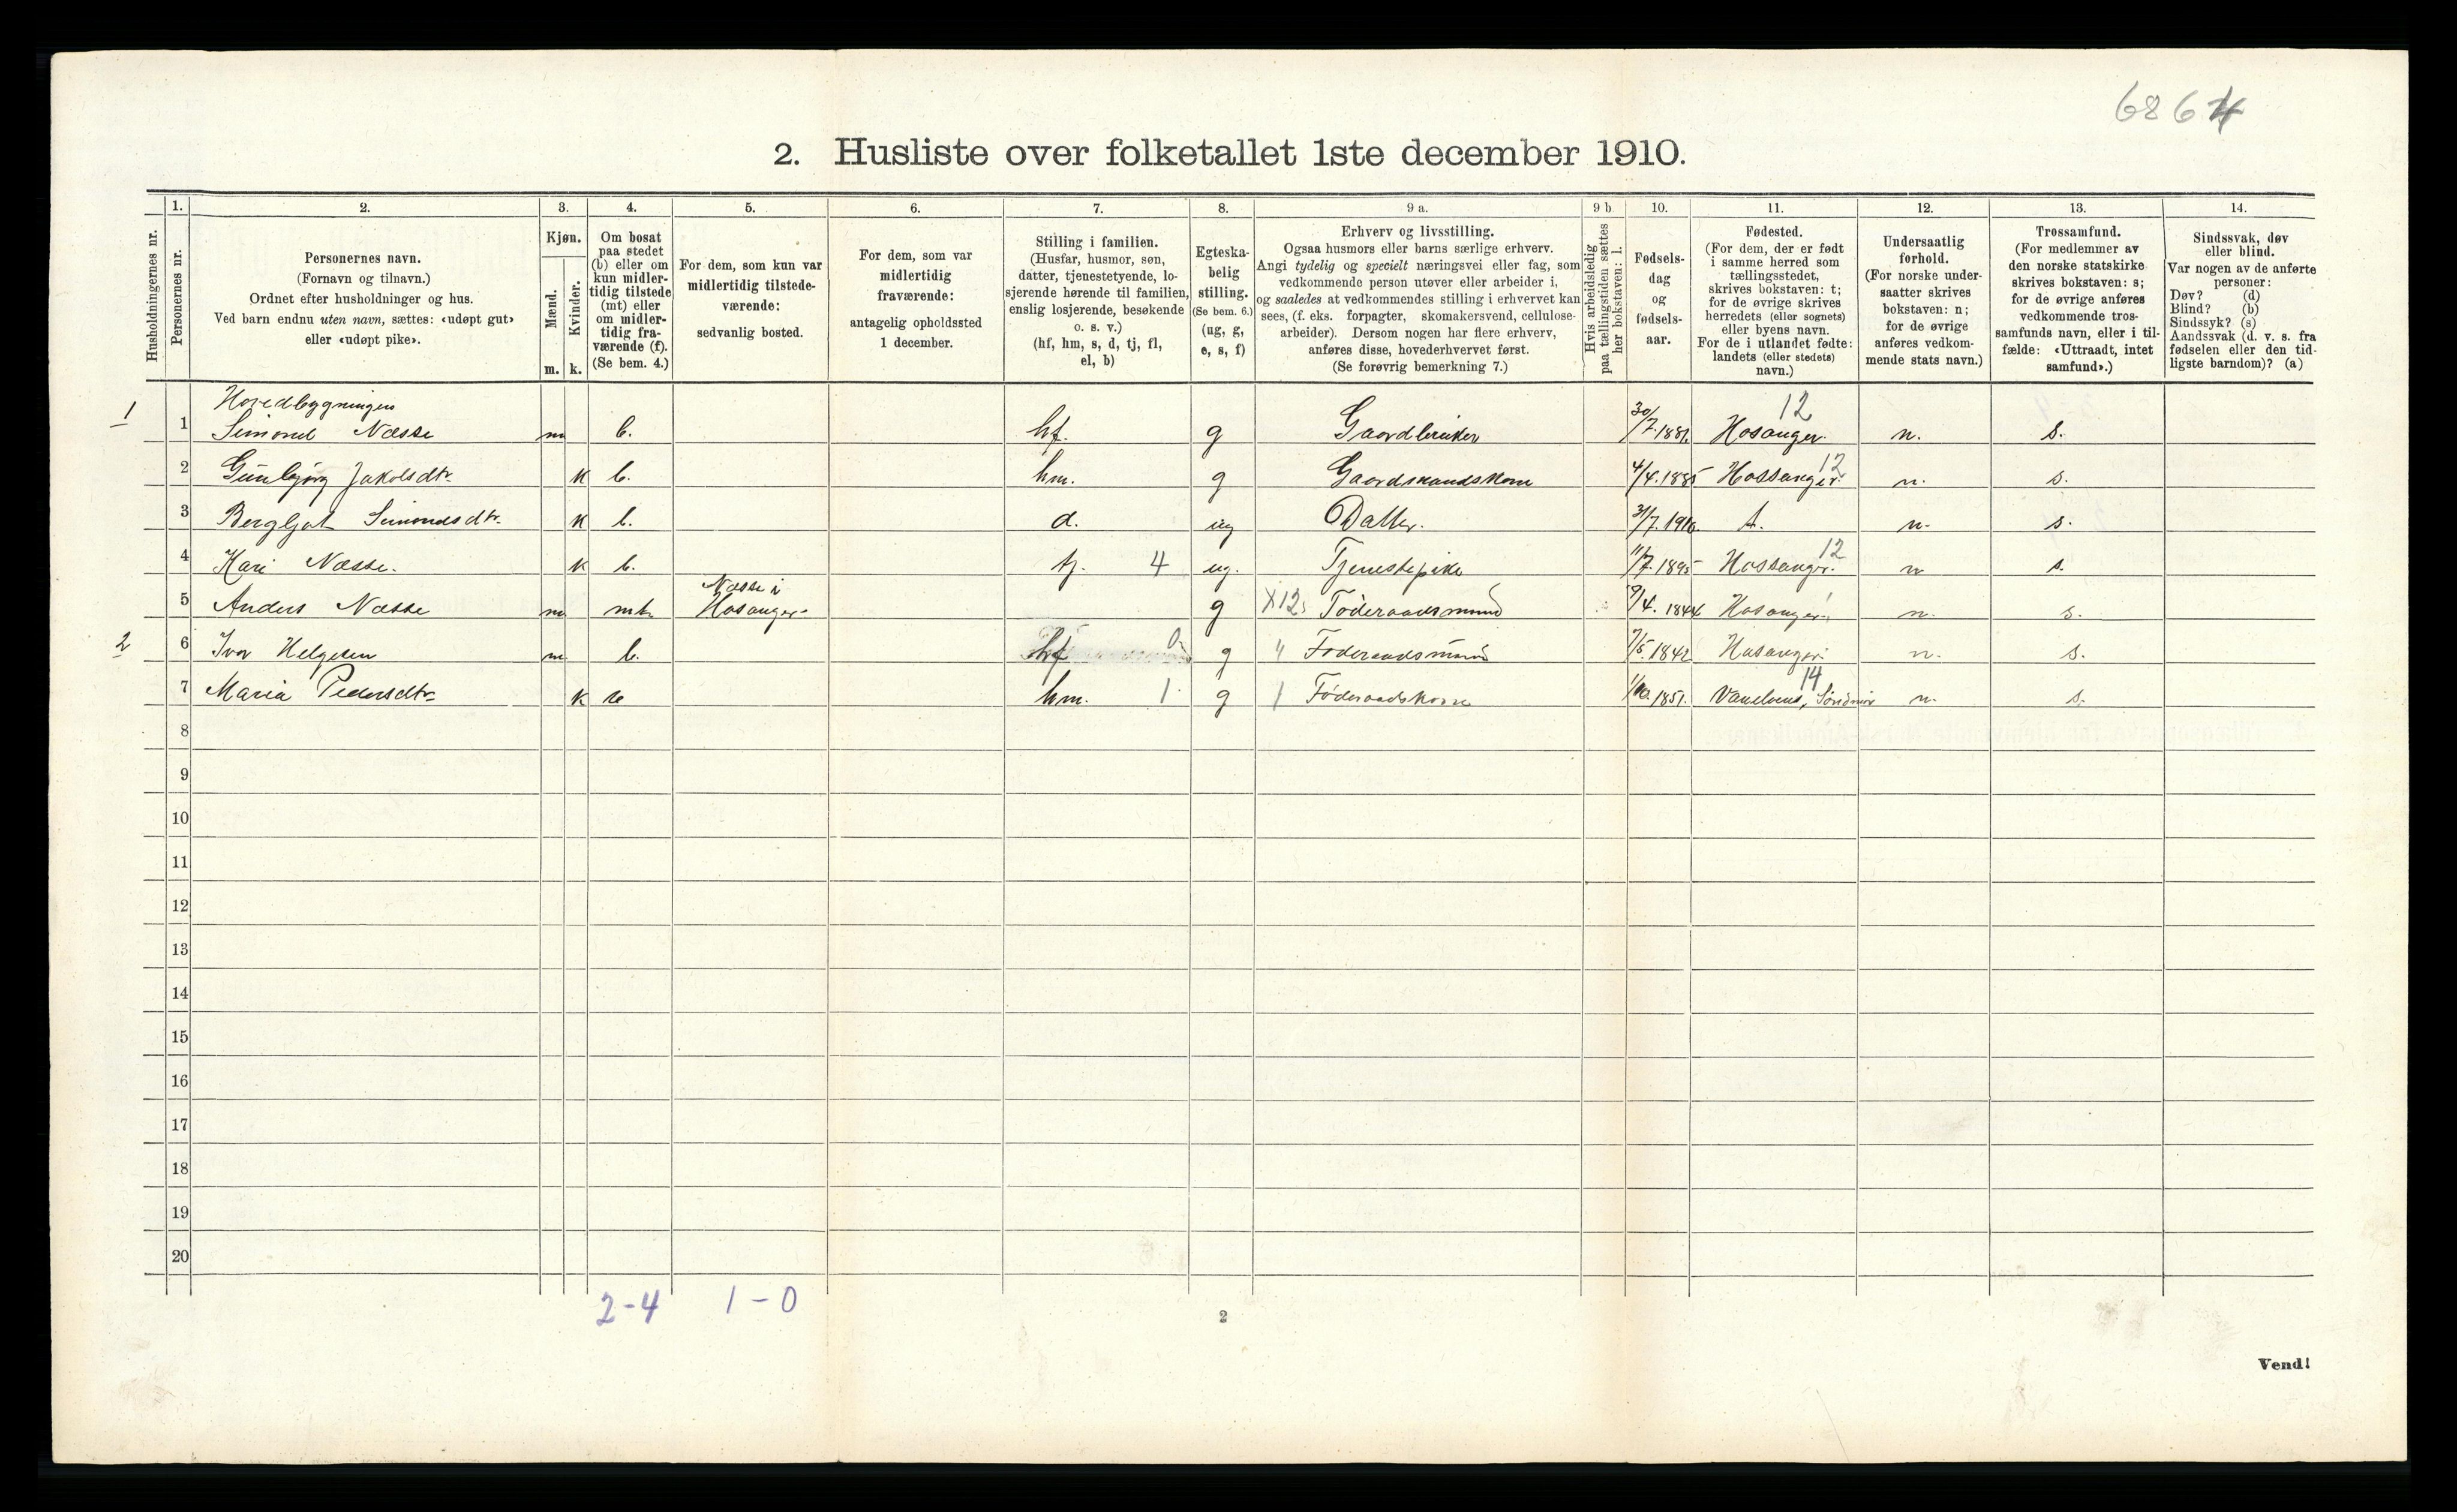 6864
2. Husliste over folketallet 1ste december 1910.
Husholdningernes nr.
1.
Personernes nr.
2.
Personernes navn.
(Fornavn og tilnavn.)
Ordnet efter husholdninger og hus.
Ved barn endnu uten navn, sættes: «udøpt gut»
eller «udøpt pike».
3.
Kjøn.
Mænd.
Kvinder.
m. k.
4.
Om bosat
paa stedet
(b) eller om
kun midler-
tidig tilstede
(mt) eller
om midler-
tidig fra-
værende (f).
(Se bem. 4.)
5.
For dem, som kun var
midlertidig tilstede-
værende:
sedvanlig bosted.
6.
For dem, som var
midlertidig
fraværende:
antagelig opholdssted
1 december.
7.
Stilling i familien.
(Husfar, husmor, søn,
datter, tjenestetyende, lo-
sjerende hørende til familien,
enslig losjerende, besøkende
o. s. v.)
(hf, hm, s, d, tj, fl,
el, b)
8.
Egteska-
belig
stilling.
(Se bem. 6.)
(ug, g,
e, s, f)
9 a.
Erhverv og livsstilling.
Ogsaa husmors eller barns særlige erhverv.
Angi tydelig og specielt næringsvei eller fag, som
vedkommende person utøver eller arbeider i,
og saaledes at vedkommendes stilling i erhvervet kan
sees, (f. eks. forpagter, skomakersvend, cellulose-
arbeider). Dersom nogen har flere erhverv,
anføres disse, hovederhvervet først.
(Se forøvrig bemerkning 7.)
9 b
Hvis arbeidsledig
paa tællingstiden sættes
her bokstaven: l.
10.
Fødsels-
dag
og
fødsels-
aar.
11.
Fødested.
(For dem, der er født
i samme herred som
tællingsstedet,
skrives bokstaven: t;
for de øvrige skrives
herredets (eller sognets)
eller byens navn.
For de i utlandet fødte:
landets (eller stedets)
navn.)
12.
Undersaatlig
forhold.
(For norske under-
saatter skrives
bokstaven: n;
for de øvrige
anføres vedkom-
mende stats navn.)
13.
Trossamfund.
(For medlemmer av
den norske statskirke
skrives bokstaven: s;
for de øvrige anføres
vedkommende tros-
samfunds navn, eller i til-
fælde: «Uttraadt, intet
samfund».)
14.
Sindssvak, døv
eller blind.
Var nogen av de anførte
personer:
Døv? (d)
Blind? (b)
Sindssyk? (s)
Aandssvak (d. v. s. fra
fødselen eller den tid-
ligste barndom)? (a)
Hovedbygningen 12
1 1 Simond Næsse m b. hf. g Gaardbruker 30/7.1881. Hosanger. n. s.
2 Gunbjørg Jakobsdtr. k b. hm. g Gaardmandskone 4/4.1885 Hossanger. 12 n. s.
3 Bergljot Simondsdtr. k b. d. ug Datter. 31/7.1910. t. n. s.
4 Kari Næsse. k b. tj. 4 ug. Tjenestepike 11/7.1895 Hossanger. 12 n s.
Næsse i
5 Anders Næsse m mt. Hosanger. g X12 Føderaadsmand 9/4.1844 Hosanger. n. s.
2 6 Ivar Helgesen m b. hf 0 g " Føderaadsmand 7/5.1842 Hosanger. n. s.
14
7 Maria Pedersdtr. k b hm. 1 g 1 Føderaadskone 1/10.1851. Vanelven, Søndmør n. s.
8
9
10
11
12
13
14
15
16
17
18
19
20
2-4 1-0
2
Vend!